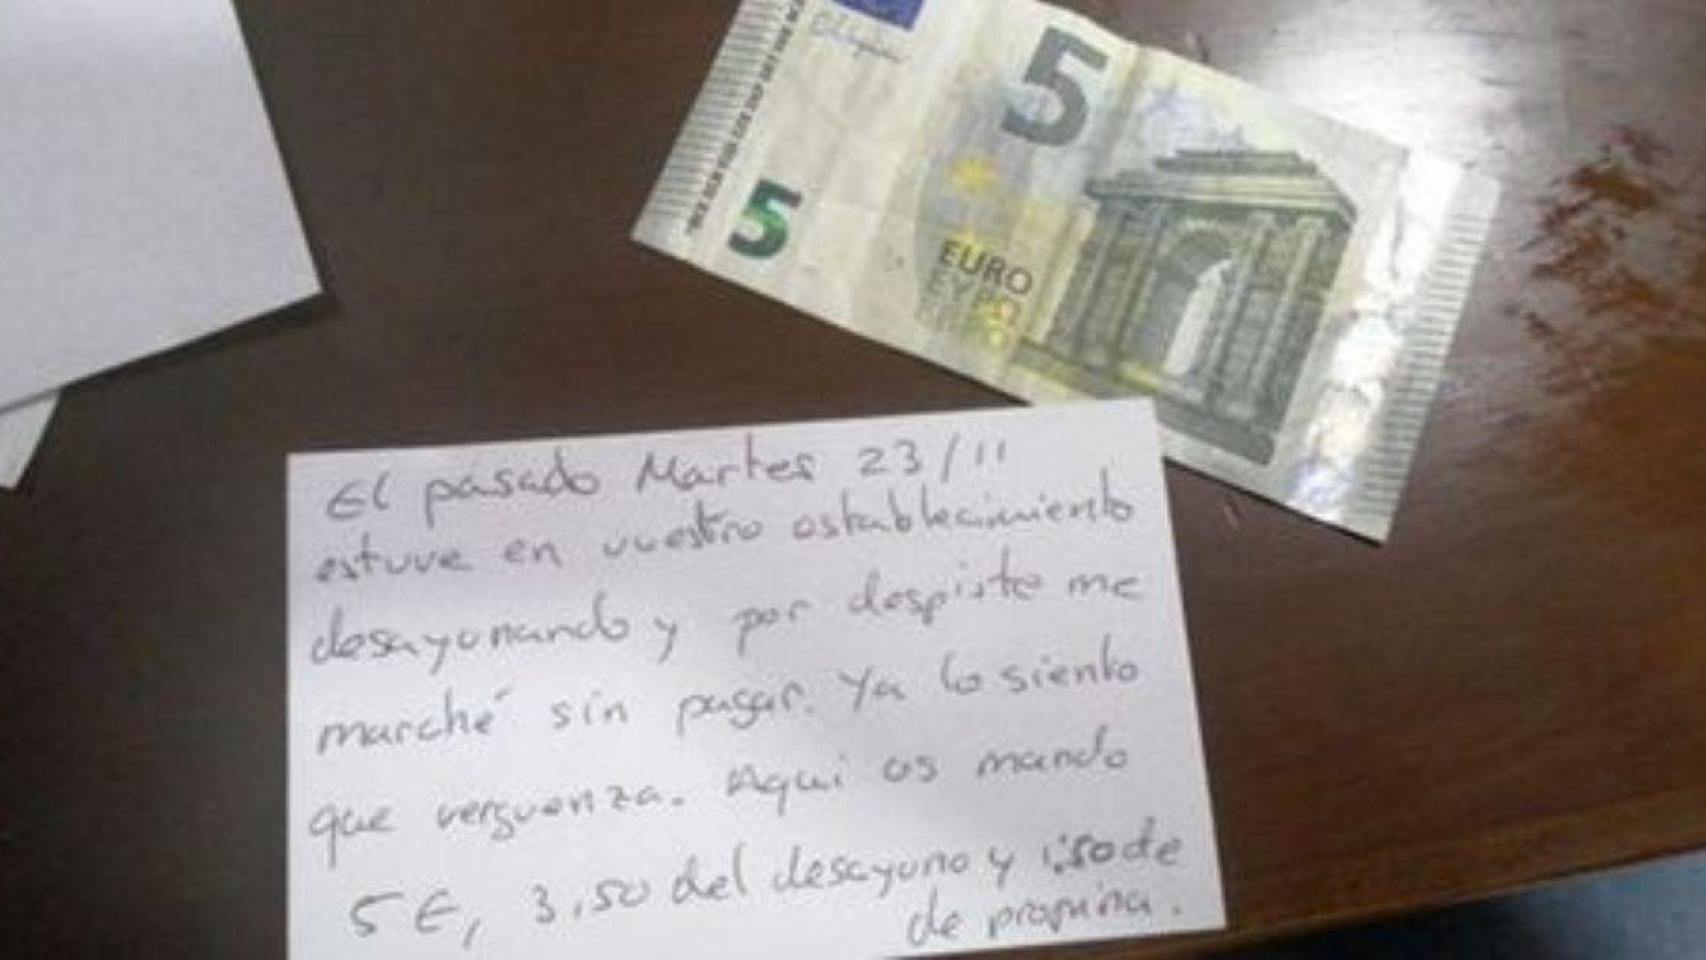 5
5
EURO
ΕΥΡΩ
El pasado Martes 23/11
estuve en vuestro establecimiento
desayunando y por despiste me
marché sin pagar. Ya lo siento
que verguenza. Aqui os mando
5 €, 3,50 del desayuno y 1,50 de
de propina.